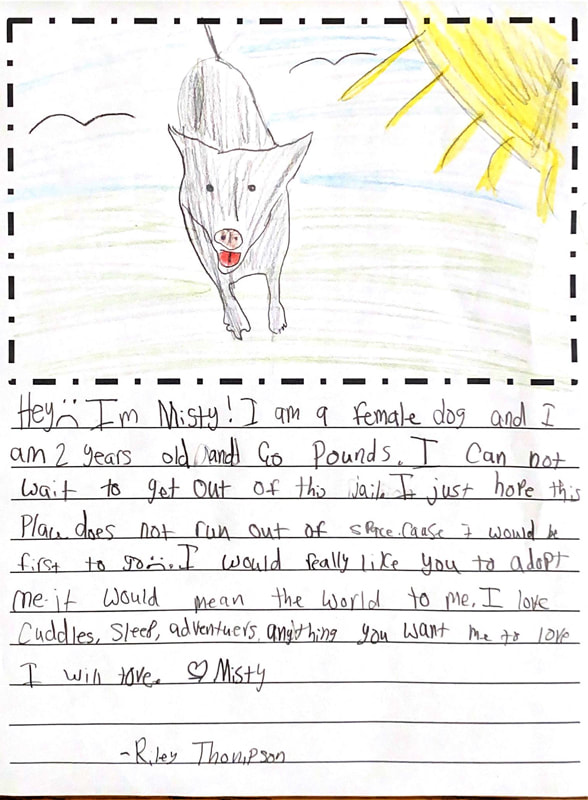 Hey ☹ I'm Misty! I am a female dog and I
am 2 years old and 60 Pounds. I Can not
wait to get out of this jail. I just hope this
Place does not run out of space. Cause I would be
first to go ☹. I would really like you to adopt
me. it would mean the world to me. I love
Cuddles, sleep, adventuers, anything you want me to love
I will love. ♡ Misty
-Riley Thompson